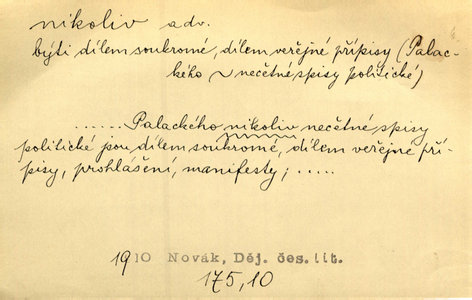 nikoliv adv.
býti dílem soukromé, dílem veřejné přípisy (Palac-
kého ~ nečetné spisy politické)
...... Palackého nikoliv nečetné spisy
politické jsou dílem soukromé, dílem veřejné pří-
pisy, prohlášení, manifesty; .....
1910 Novák, Děj. čes. lit.
175,10